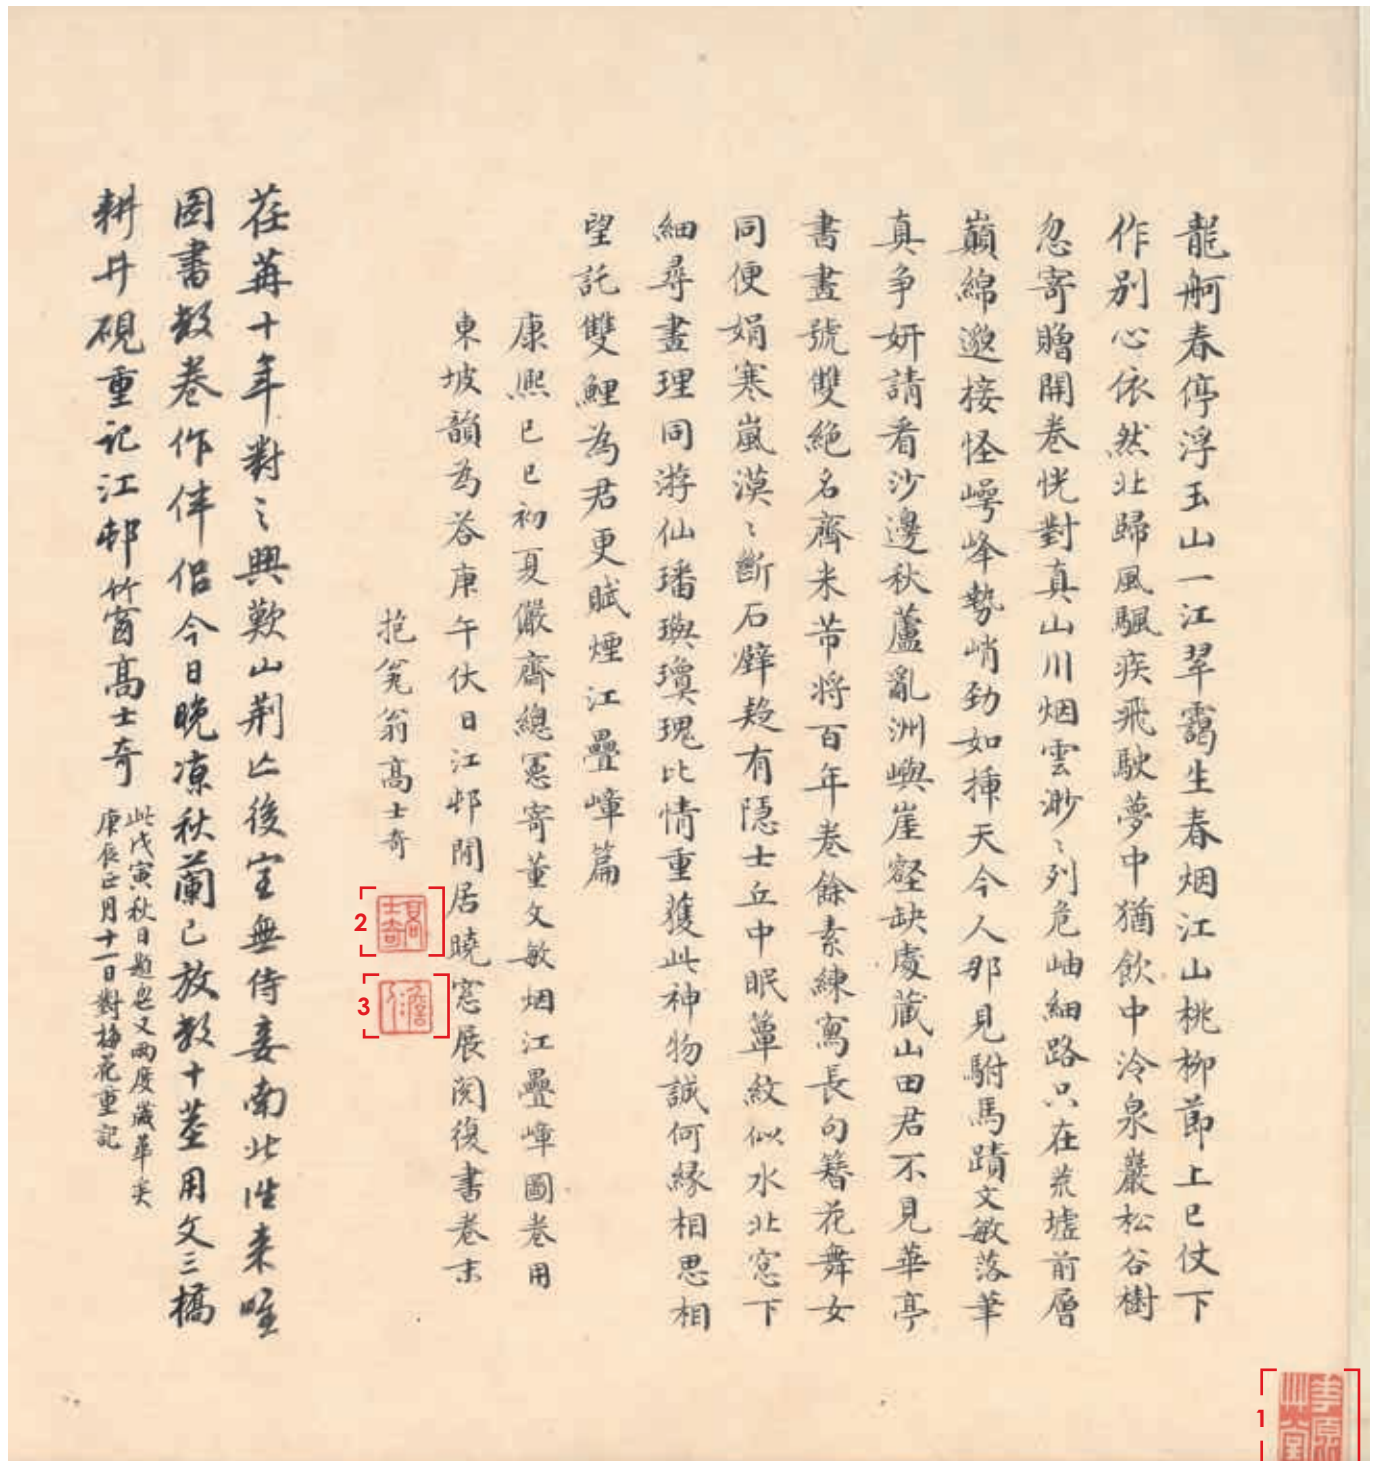 龍舸春停浮玉山一江翠靄生春烟江山桃柳節上巳仗下
作別心依然北歸風颿疾飛駛夢中猶飲中泠泉巖松谷樹
忽寄贈開卷恍對真山川烟雲渺〻列危岫細路只在荒墟前層
巔綿邈接怪崿峰勢峭勁如揷天今人那見駙馬蹟文敏落筆
真爭妍請看沙邊秋蘆亂洲嶼崖壑缺處藏山田君不見華亭
書畫號雙絕名齊米芾將百年卷餘素練寫長句簪花舞女
同便娟寒嵐漠〻斷石壁疑有隱士丘中眠簟紋似水北窓下
細尋畫理同游仙璠璵瓊瑰比情重獲此神物誠何緣相思相
望託雙鯉為君更賦煙江疊嶂篇
康熙己巳初夏儼齋總憲寄董文敏烟江疊嶂圖卷用
東坡韻為答庚午伏日江邨閒居曉窓展閱復書卷末
抱瓮翁高士奇
2
高士奇
3
澹人
荏苒十年對〻興歎山荆亾後室無侍妾南北往来唯
圖書數卷作伴侶今日晚凉秋蘭已放數十莖用文三橋
耕井硯重記江邨竹窗高士奇
此戊寅秋日題也又兩度歲華矣
庚辰正月十一日對梅花重記
1
草堂